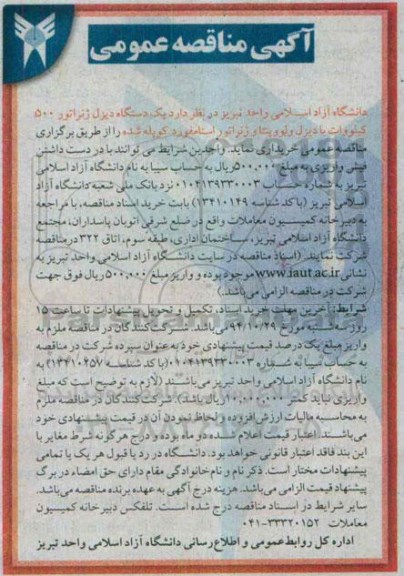 آگهی مناقصه عمومی
دانشگاه آزاد اسلامی واحد تبریز در نظر دارد یک دستگاه دیزل ژنراتور ۵۰۰
کیلووات با دیزل ولوو پنتا و ژنراتور استامفورد کوپله شده را از طریق برگزاری
مناقصه عمومی خریداری نماید. واجدین شرایط می توانند با در دست داشتن
فیش واریزی به مبلغ ۵۰۰,۰۰۰ ریال به حساب سیبا به نام دانشگاه آزاد اسلامی
تبریز به شماره حساب ۰۱۰۴۱۳۹۳۳۰۰۰۳ نزد بانک ملی شعبه دانشگاه آزاد
اسلامی تبریز (با کد شناسه ۱۳۴۱۰۱۴۹) بابت خرید اسناد مناقصه، با مراجعه
به دبیرخانه کمیسیون معاملات واقع در ضلع شرقی اتوبان پاسداران، مجتمع
دانشگاه آزاد اسلامی تبریز، ساختمان اداری، طبقه سوم، اتاق ۳۲۲ در مناقصه
شرکت نمایند. (اسناد مناقصه در سایت دانشگاه آزاد اسلامی واحد تبریز به
نشانی www.iaut.ac.ir موجود بوده و واریز مبلغ ۵۰۰,۰۰۰ ریال فوق جهت
شرکت در مناقصه الزامی می باشد.)
شرایط: آخرین مهلت خرید اسناد، تکمیل و تحویل پیشنهادات تا ساعت ۱۵
روز سه شنبه مورخ ۹۴/۱۰/۲۹ می باشد. شرکت کنندگان در مناقصه ملزم به
واریز مبلغ یک درصد قیمت پیشنهادی خود به عنوان سپرده شرکت در مناقصه
به حساب سیبا به شماره ۰۱۰۴۱۳۹۳۳۰۰۰۳ (با کد شناسه ۱۳۴۱۰۴۵۷) به
نام دانشگاه آزاد اسلامی واحد تبریز می باشند (لازم به توضیح است که مبلغ
واریزی نباید کمتر ۱۰,۰۰۰,۰۰۰ ریال باشد). شرکت کنندگان در مناقصه ملزم
به محاسبه مالیات ارزش افزوده و لحاظ نمودن آن در قیمت پیشنهادی خود
می باشند. اعتبار قیمت اعلام شده دو ماه بوده و درج هر گونه شرط مغایر با
این بند فاقد اعتبار قانونی خواهد بود. دانشگاه در رد یا قبول هر یک یا تمامی
پیشنهادات مختار است. ذکر نام و نام خانوادگی مقام دارای حق امضاء در برگ
پیشنهاد قیمت الزامی می باشد. هزینه درج آگهی به عهده برنده مناقصه می باشد.
سایر شرایط در اسناد مناقصه درج شده است. تلفکس دبیرخانه کمیسیون
معاملات ۳۳۳۲۰۱۵۲-۰۴۱
اداره کل روابط عمومی و اطلاع رسانی دانشگاه آزاد اسلامی واحد تبریز